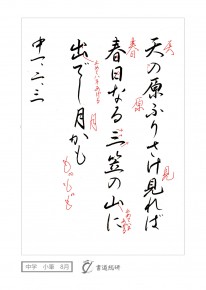 天の原ふりさけ見れば
春日なる三笠の山に
出でし月かも
中一、二、三
中学 小筆 6月
書道総研